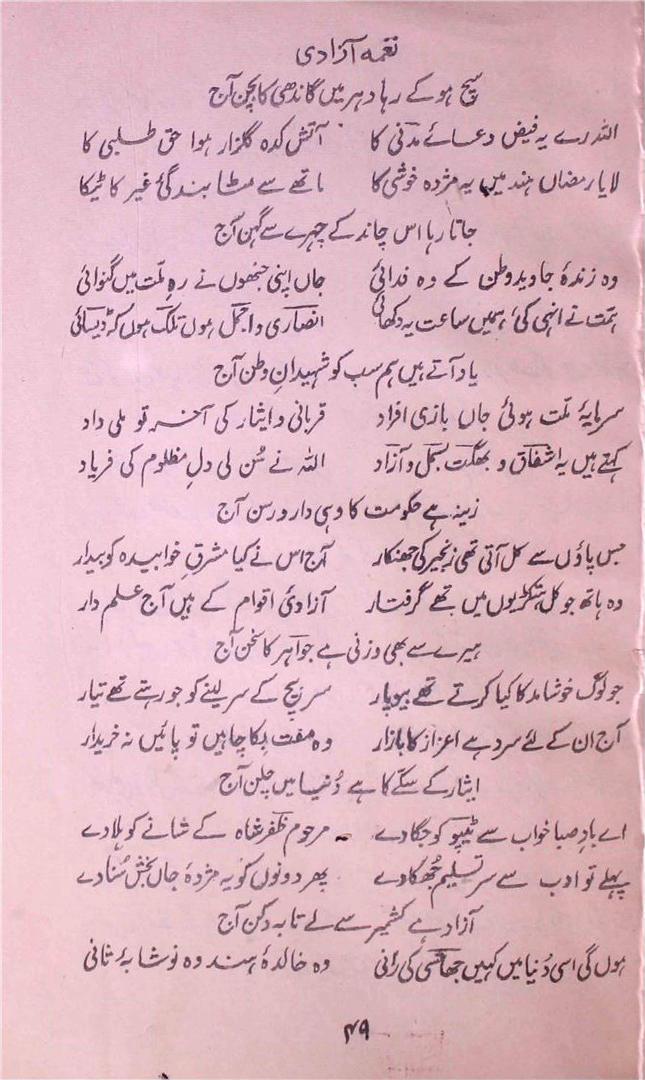 نغمہ آزادی
سچ ہو کے رہا دہر میں گاندھی کا بچن آج
اللہ رے یہ فیض دعائے مدنی کا آتش کدہ گلزار ہوا حق طلبی کا
لایا رمضاں ہند میں یہ مژدہ خوشی کا ماتھے سے مٹا بندگیٔ غیر کا ٹیکا
جاتا رہا اس چاند کے چہرے سے گہن آج
وہ زندۂ جاوید وطن کے وہ فدائی جاں اپنی جنھوں نے رہِ ملّت میں گنوائی
ہمّت نے انہی کی، ہمیں ساعت یہ دکھائی انصاری و اجمل ہوں تلک ہوں کہ ڈیسائی
یاد آتے ہیں ہم سب کو شہیدانِ وطن آج
سرمایۂ ملّت ہوئی جاں بازی افراد قربانی و ایثار کی آخر تو ملی داد
کہتے ہیں یہ اشفاق و بھگت بسمل و آزاد اللہ نے سُن لی دلِ مظلوم کی فریاد
زینہ ہے حکومت کا وہی دار و رسن آج
جس پاؤں سے کل آتی تھی زنجیر کی جھنکار آج اس نے کیا مشرقِ خوابیدہ کو بیدار
وہ ہاتھ جو کل ہتکڑیوں میں تھے گرفتار آزادیٔ اقوام کے ہیں آج علم دار
ہیرے سے بھی وزنی ہے جواہر کا سخن آج
جو لوگ خوشامد کا کیا کرتے تھے بیوپار سر پیچ کے سر لینے کو جو رہتے تھے تیار
آج ان کے لئے سرد ہے اعزاز کا بازار وہ مفت بکا چاہیں تو پائیں نہ خریدار
ایثار کے سکّے کا ہے دُنیا میں چلن آج
اے بادِ صبا خواب سے ٹیپو کو جگا دے مرحوم ظفر شاہ کے شانے کو ہلا دے
پہلے تو ادب سے سر تسلیم جُھکا دے پھر دونوں کو یہ مژدۂ جاں بخش سُنا دے
آزاد ہے کشمیر سے لے تا بہ دکن آج
ہوں گی اسی دُنیا میں کہیں جھانسی کی رانی وہ خالدۂ ہند وہ نوشابۂ ثانی
۴۹